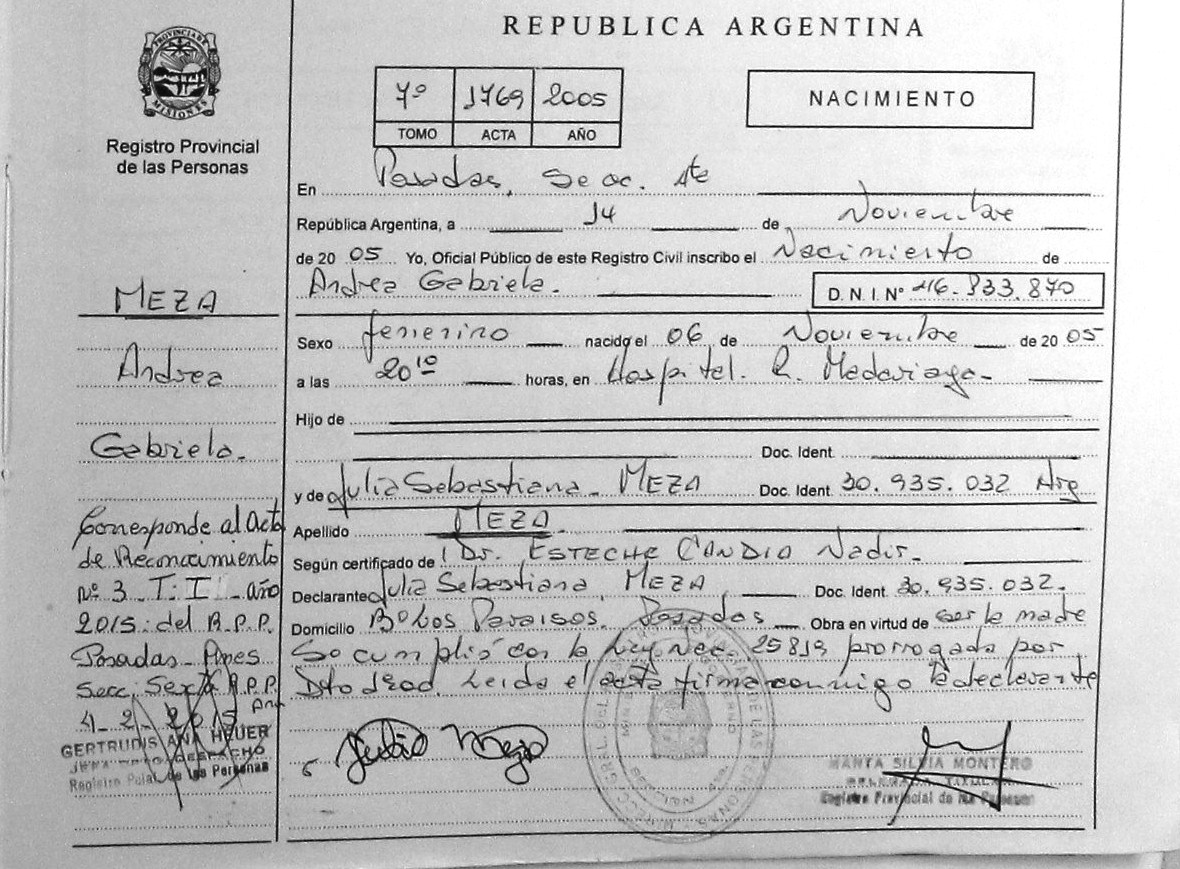 REPUBLICA ARGENTINA
PROVINCIA DE MISIONES
Registro Provincial
de las Personas
7º 1769 2005
TOMO ACTA AÑO
NACIMIENTO
En Posadas, Secc. 4te
República Argentina, a 14 de Noviembre
de 2005 Yo, Oficial Público de este Registro Civil inscribo el Nacimiento de
Andrea Gabriela. D.N.I. Nº 46.833.870
Sexo femenino nacido el 06 de Noviembre de 2005
a las 20 10 horas, en Hospital. R. Madariaga-
Hijo de
Doc. Ident.
y de Julia Sebastiana MEZA Doc. Ident. 30.935.032 Arg
Apellido MEZA
Según certificado de Dr. ESTECHE CANDIA Nadir-
Declarante Julia Sebastiana, MEZA, Doc. Ident. 30.935.032-
Domicilio Bº Los Paraisos, Posadas Obra en virtud de ser la madre
Se cumplió con la Ley Nac. 25819 prorrogada por
Dto Leida el acta firma conmigo la declarante
Julia Meza
MARTA SILVIA MONTERO
DELEGADA TITULAR
Registro Provincial de las Personas
MEZA
Andrea
Gabriela.
Corresponde al Acta
de Reconocimiento
nº 3 T: I año
2015 del R.P.P.
Posadas-Mnes
Secc. Sexta R.P.P.
4-2-2015
GERTRUDIS ANA HEUER
JEFA DESPACHO
Registro Pcial. de las Personas